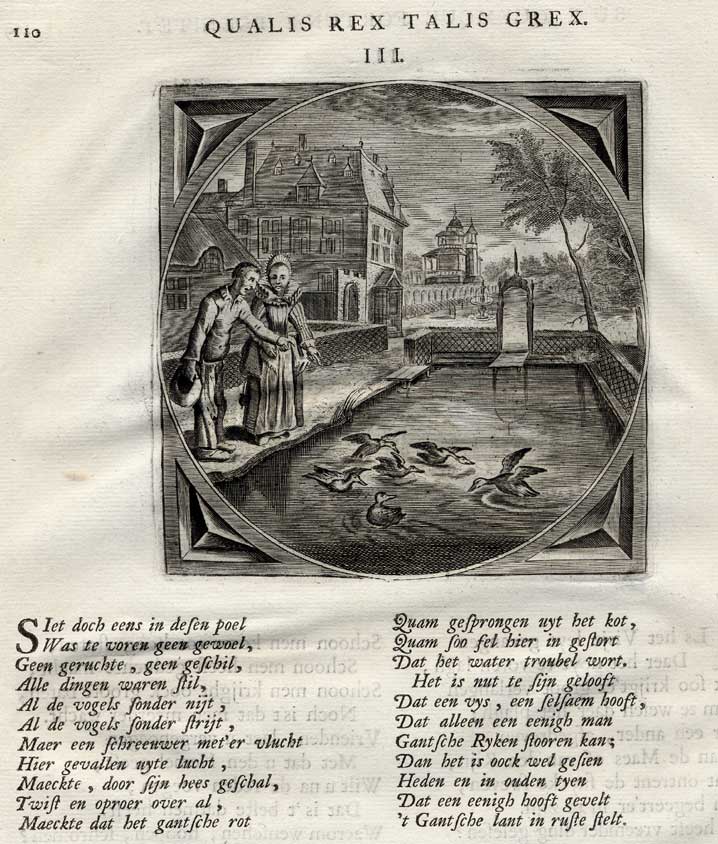 110
QUALIS REX TALIS GREX.
III.
SIet doch eens in desen poel
Was te voren geen gewoel,
Geen geruchte, geen geschil,
Alle dingen waren stil,
Al de vogels sonder nijt,
Al de vogels sonder strijt,
Maer een schreeuwer met'er vlucht
Hier gevallen uyte lucht,
Maeckte, door sijn hees geschal,
Twist en oproer over al,
Maeckte dat het gantsche rot
Quam gesprongen uyt het kot,
Quam soo fel hier in gestort
Dat het water troubel wort.
Het is nut te sijn gelooft
Dat een vys, een selsaem hooft,
Dat alleen een eenigh man
Gantsche Ryken stooren kan;
Dan het is oock wel gesien
Heden en in ouden tyen
Dat een eenigh hooft gevelt
't Gantsche lant in ruste stelt.